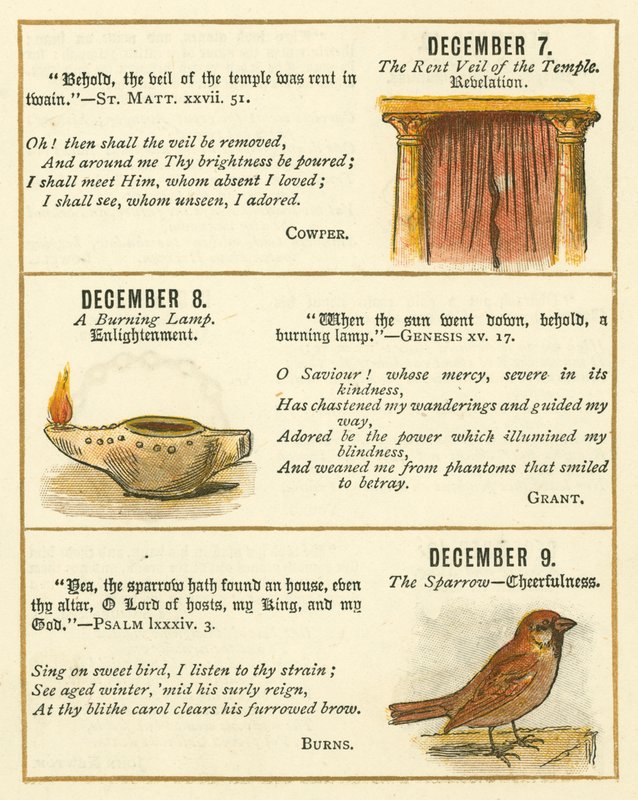 DECEMBER 7.
The Rent Veil of the Temple.
Revelation.
"Behold, the veil of the temple was rent in
twain."—ST. MATT. xxvii. 51.
Oh! then shall the veil be removed,
And around me Thy brightness be poured;
I shall meet Him, whom absent I loved;
I shall see, whom unseen, I adored.
COWPER.
DECEMBER 8.
A Burning Lamp.
Enlightenment.
"When the sun went down, behold, a
burning lamp."—GENESIS xv. 17.
O Saviour! whose mercy, severe in its
kindness,
Has chastened my wanderings and guided my
way,
Adored be the power which illumined my
blindness,
And weaned me from phantoms that smiled
to betray.
GRANT.
DECEMBER 9.
The Sparrow—Cheerfulness.
"Yea, the sparrow hath found an house, even
thy altar, O Lord of hosts, my King, and my
God."—PSALM lxxxiv. 3.
Sing on sweet bird, I listen to thy strain;
See aged winter, 'mid his surly reign,
At thy blithe carol clears his furrowed brow.
BURNS.